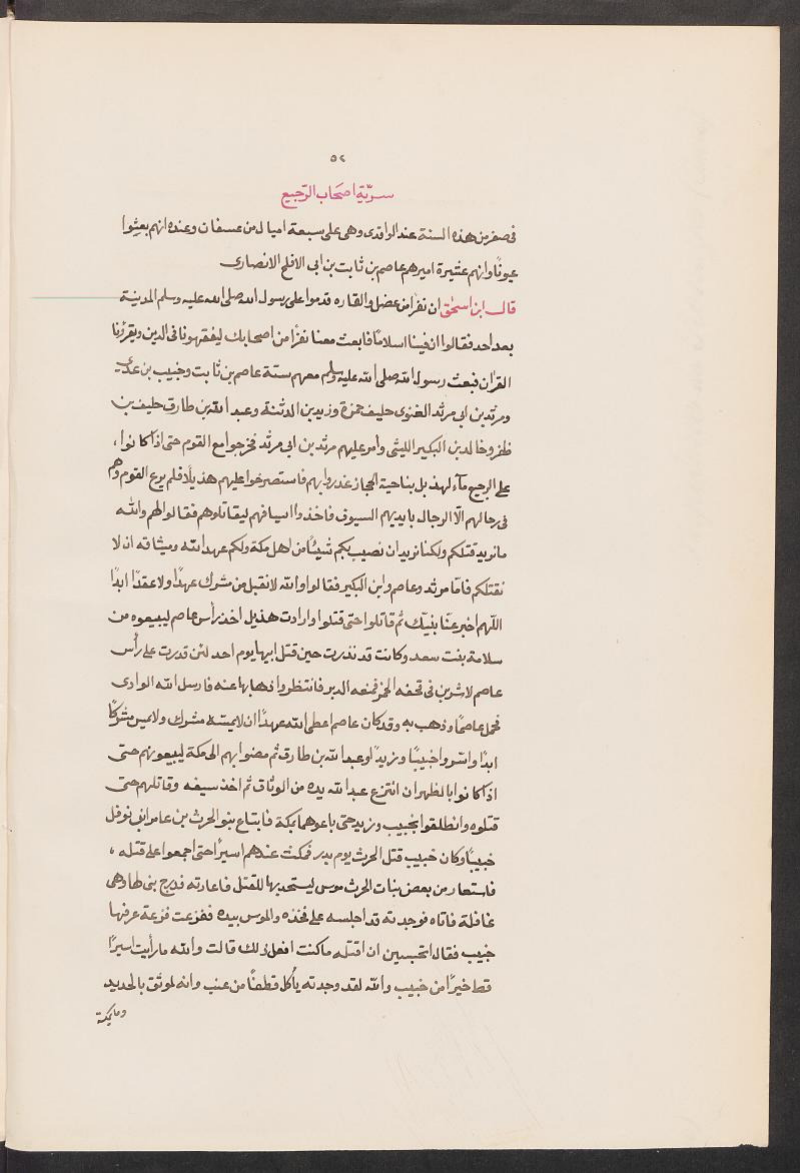 ٥٤
سريّة اصحاب الرّجيع
فى صفر من هذه السنة عند الواقدى وهى على سبعة اميال من عسفان وعنده انهم بعثوا
عيونًا وانهم عشيرة اميرهم عاصم بن ثابت بن ابى الافلح الانصارى
قال ابن اسحٰق ان نفرًا من عضل والقاره قدموا على رسول الله صلى الله عليه وسلم المدينة
بعد احد فقالوا ان فينا اسلامًا فابعث معنا نفرًا من اصحابك ليفقهونا فى الدين ويقرؤنا
القرٰان فبعث رسول الله صلى الله عليه وسلم معهم ستة عاصم بن ثابت وخبيب بن عدى
ومرثد بن ابى مرثد الغنوى حليف حمزة وزيد بن الدثنة وعبد الله بن طارق حليف بن
ظفر وخالد بن البكير الليثى وامر عليهم مرثد بن ابى مرثد فخرجوا مع القوم حتى اذا كانوا
على الرجيع مآء لهذيل بناحية الحجاز غدروا بهم فاستصرخوا عليهم هذيلا فلم يرع القوم وهم
فى رحالهم الّا الرجال بايديهم السيوف فاخذوا اسيافهم ليقاتلوهم فقالوا لهم والله
ما نريد قتلكم ولكنا نريد ان نصيب بكم شيئًا من اهل مكة ولكم عهد الله وميثاقه ان لا
نقتلكم فامّا مرثد وعاصم وابن البكير فقالوا والله لا نقبل من مشرك عهدًا ولا عقدًا ابدًا
اللّهم اخبر عنّا بنيّك ثم قاتلوا حتى قتلوا وارادت هذيل اخذ رأس عاصم ليبيعوه من
سلامة بنت سعد وكانت قد نذرت حين قتل ابيها يوم احد لئن قدرت على رأس
عاصم لاشربن فى تحفه الخمر فمنعه الدبر فانتظروا ذهابها عنه فارسل الله الوادى
فحمل عاصمًا وذهب به وقد كان عاصم اعطى الله عهدًا ان لا يمسّه مشرك ولا يمس مشركًا
ابدًا واسروا خبيبًا وزيدًا وعبد الله بن طارق ثم مضوا بهم الى مكة ليبيعونهم حتى
اذا كانوا بالظهران انتزع عبد الله يده من الوثاق ثم اخذ سيفه وقاتلهم حتى
قتلوه وانطلقوا بخبيب وزيد حتى باعوهما بمكة فابتاع بنو الحرث بن عامر ابن نوفل
خبيبًا وكان خبيب قتل الحرث يوم بدر فمكث عندهم اسيرًا حتى اجمعوا على قتله
فاستعار من بعض بنات الحرث موسى ليستحد بها للقتل فاعارته فدرج بنى لها وهى
غافلة فاتاه فوجدته قد اجلسه على فخذه والموس بيده ففزعت فزعة عرفها
خبيب فقال اتحسبين ان اقتله ما كنت افعل ذلك قالت والله ما رأيت اسيرًا
قط خيرًا من خبيب والله لقد وجدته يأكل قطفًا من عنب وانه لموثق بالحديد
وما بمكة